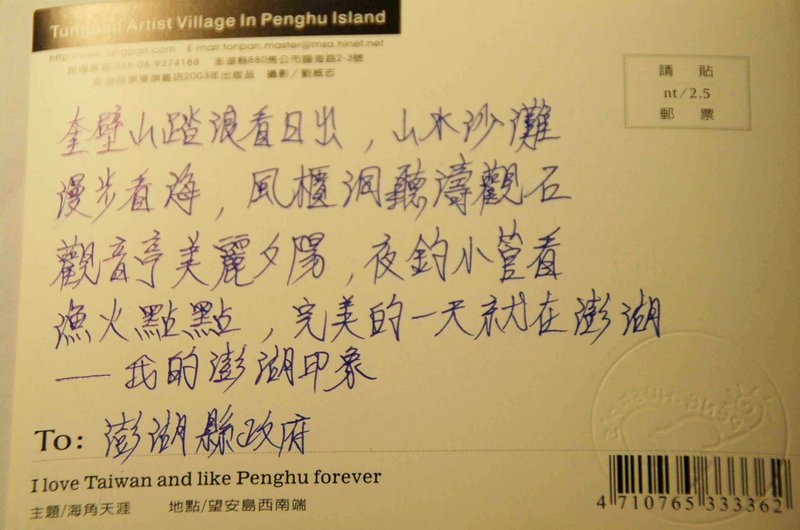 Tungpan Artist Village In Penghu Island
http://www.tongpan.com E-mail:tonpan.master@msa.hinet.net
服務專線:886-06-9274188 澎湖縣880馬公市臨海路2-3號
澎湖故事妻旗艦店2003年出版品 攝影/劉威志
請貼
nt/2.5
郵票
奎壁山踏浪看日出，山水沙灘
漫步看海，風櫃洞聽濤觀石
觀音亭美麗夕陽，夜釣小管看
漁火點點，完美的一天就在澎湖
——我的澎湖印象
To: 澎湖縣政府
I love Taiwan and like Penghu forever
主題/海角天涯 地點/望安島西南端
4 710765 333362